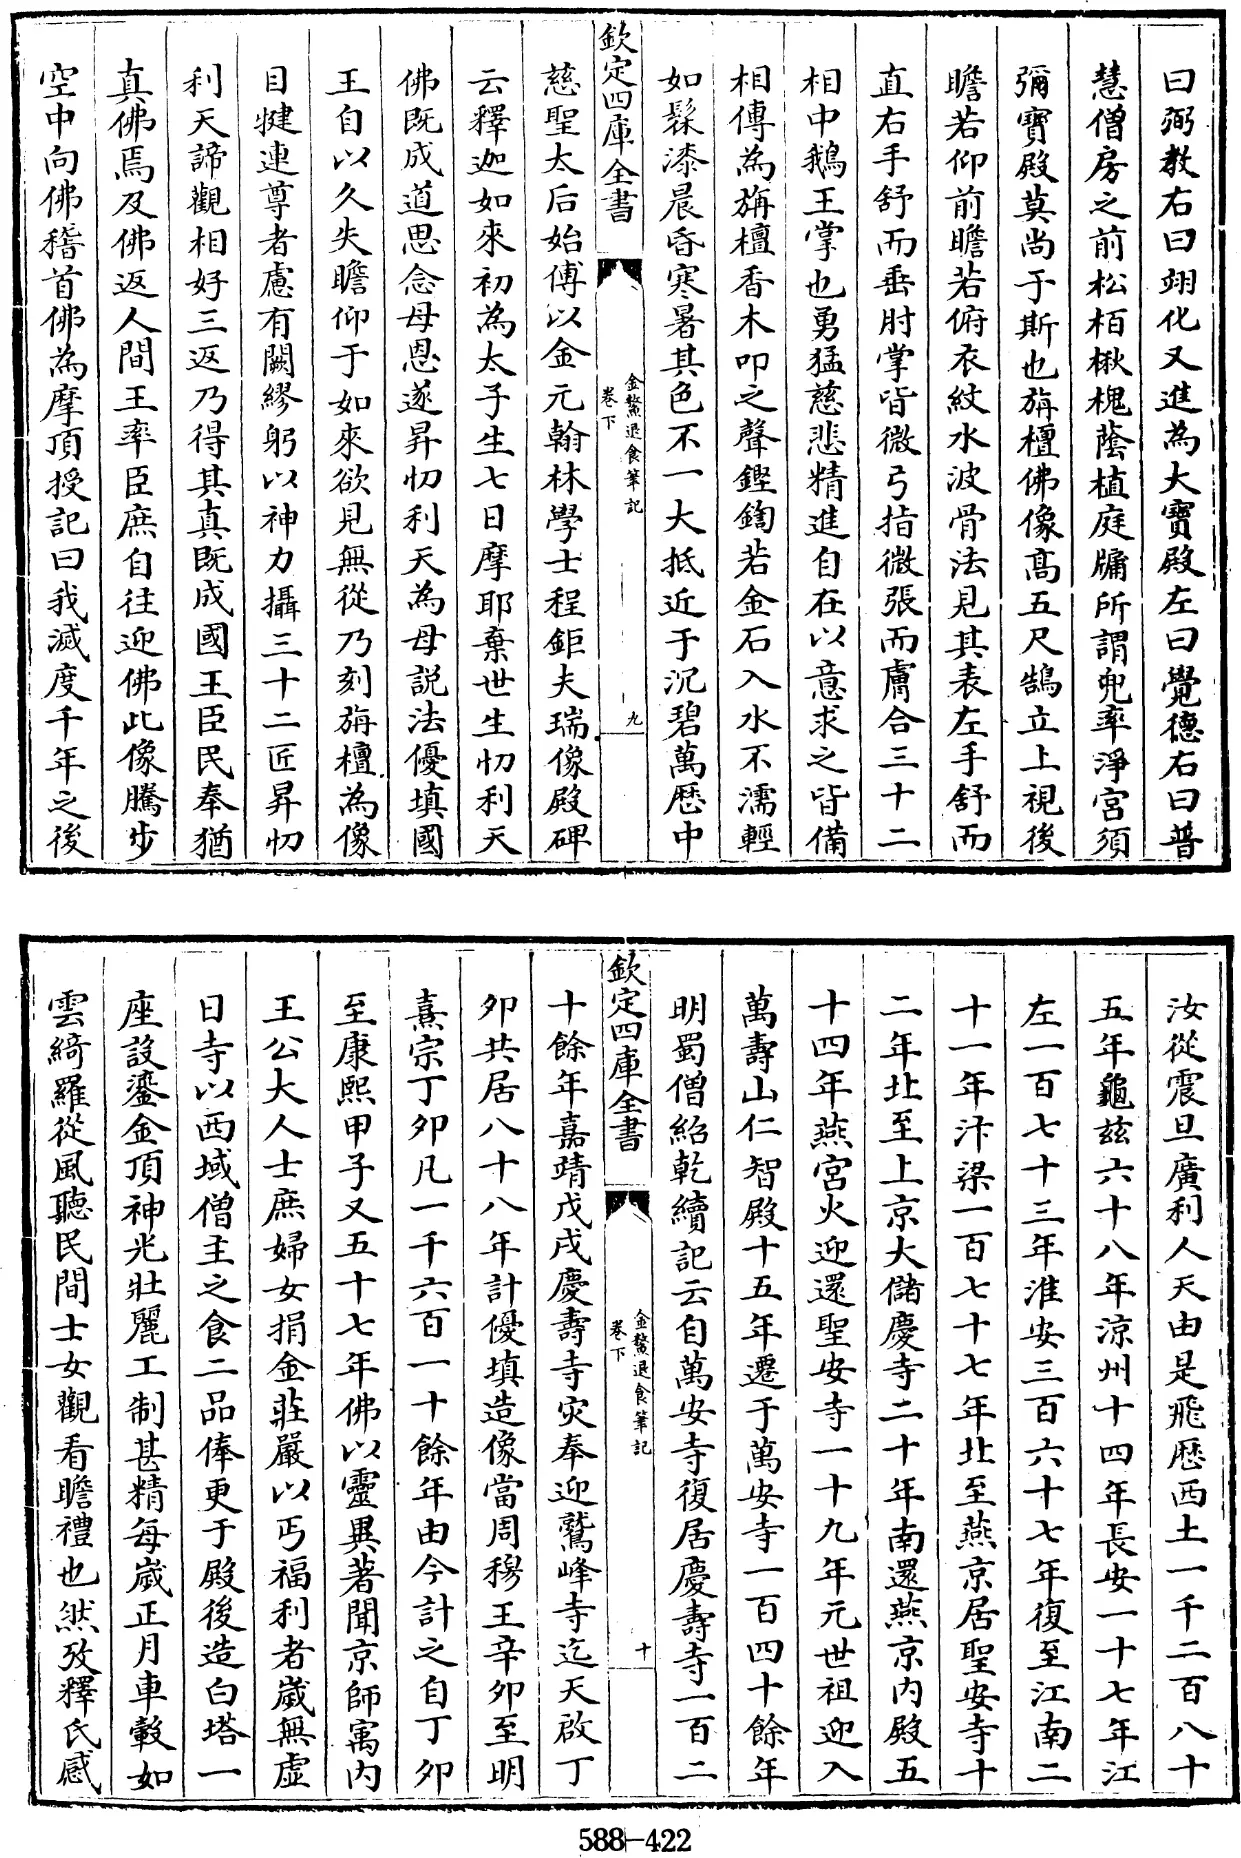 曰弼教右曰翊化又進為大寶殿左曰覺德右曰普
慧僧房之前松栢楸槐蔭植庭牖所謂兜率淨宮須
彌寶殿莫尚于斯也旃檀佛像高五尺鵠立上視後
瞻若仰前瞻若俯衣紋水波骨法見其表左手舒而
直右手舒而垂肘掌皆微弓指微張而膚合三十二
相中鵝王掌也勇猛慈悲精進自在以意求之皆備
相傳為旃檀香木叩之聲鏗鍧若金石入水不濡輕
如髹漆晨昏寒暑其色不一大抵近于沉碧萬厯中
欽定四庫全書
金鰲退食筆記
卷下
九
慈聖太后始傅以金元翰林學士程鉅夫瑞像殿碑
云釋迦如來初為太子生七日摩耶棄世生忉利天
佛既成道思念母恩遂昇忉利天為母説法優填國
王自以久失瞻仰于如來欲見無從乃刻旃檀為像
目犍連尊者慮有闕繆躬以神力攝三十二匠昇忉
利天諦觀相好三返乃得其真既成國王臣民奉猶
真佛焉及佛返人間王率臣庶自往迎佛此像騰步
空中向佛稽首佛為摩頂授記曰我滅度千年之後
汝從震旦廣利人天由是飛歷西土一千二百八十
五年龜兹六十八年涼州十四年長安一十七年江
左一百七十三年淮安三百六十七年復至江南二
十一年汴梁一百七十七年北至燕京居聖安寺十
二年北至上京大儲慶寺二十年南還燕京内殿五
十四年燕宮火迎還聖安寺一十九年元世祖迎入
萬壽山仁智殿十五年遷于萬安寺一百四十餘年
明蜀僧紹乾續記云自萬安寺復居慶壽寺一百二
欽定四庫全書
金鰲退食筆記
卷下
十
十餘年嘉靖戊戌慶壽寺灾奉迎鷲峰寺迄天啟丁
卯共居八十八年計優填造像當周穆王辛卯至明
熹宗丁卯凡一千六百一十餘年由今計之自丁卯
至康熙甲子又五十七年佛以靈異著聞京師寓内
王公大人士庶婦女捐金莊嚴以丐福利者歲無虛
日寺以西域僧主之食二品俸更于殿後造白塔一
座設鎏金頂神光壯麗工制甚精每歲正月車轂如
雲綺羅從風聽民間士女觀看瞻禮也然攷釋氏感
588-422